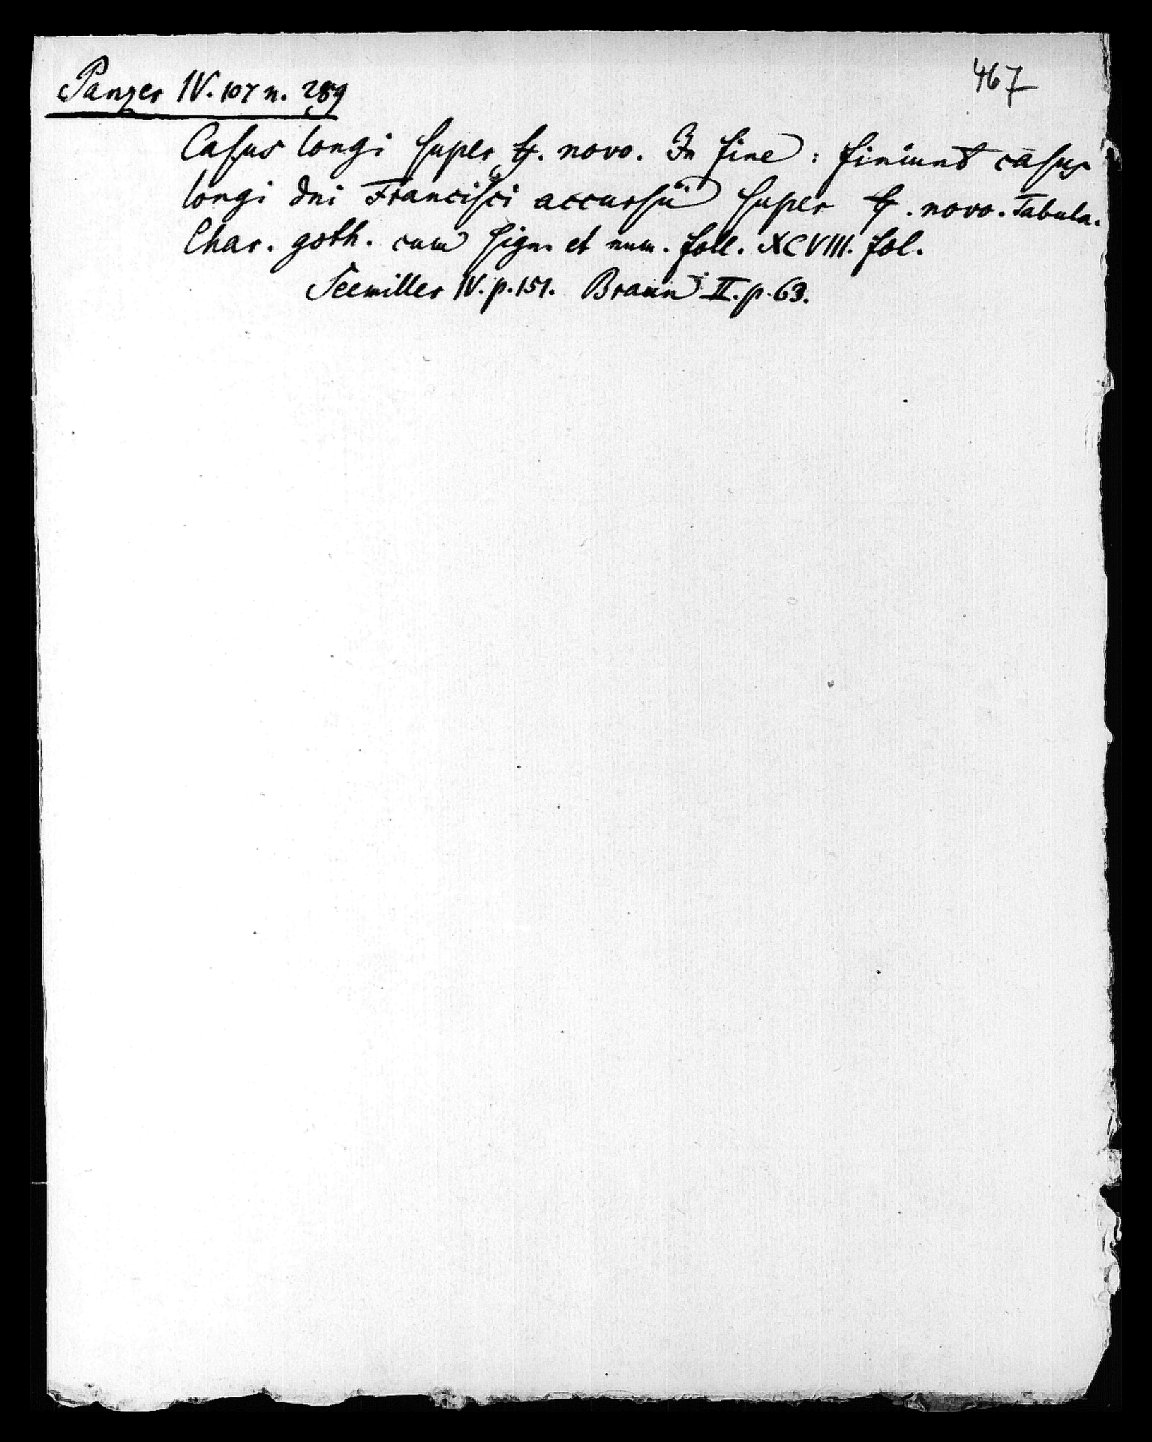 Panzer IV. 107 n. 289
467
Casus longi super ff. novo. In fine : finiunt casus
longi dni Francisci accursii super ff. novo. Tabula.
Char. goth. cum sign. et num. foll. XCVIII. fol.
Seemiller IV. p. 151. Braun II. p. 63.